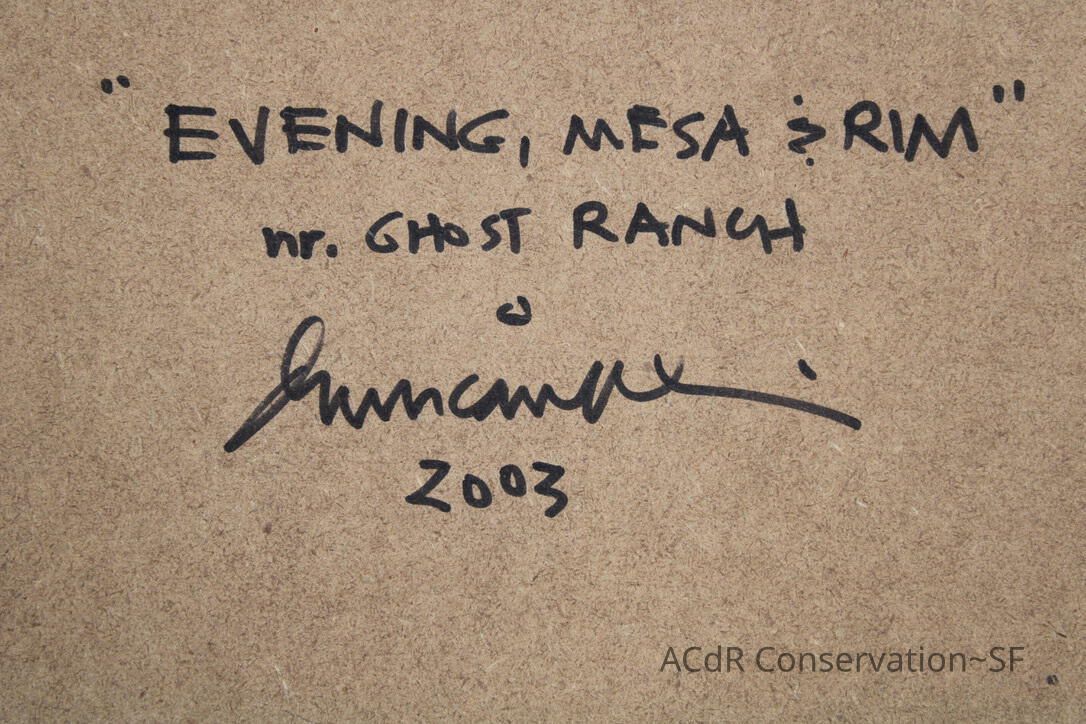 "EVENING, MESA & RIM"
nr. GHOST RANCH
2003
ACdR Conservation~SF